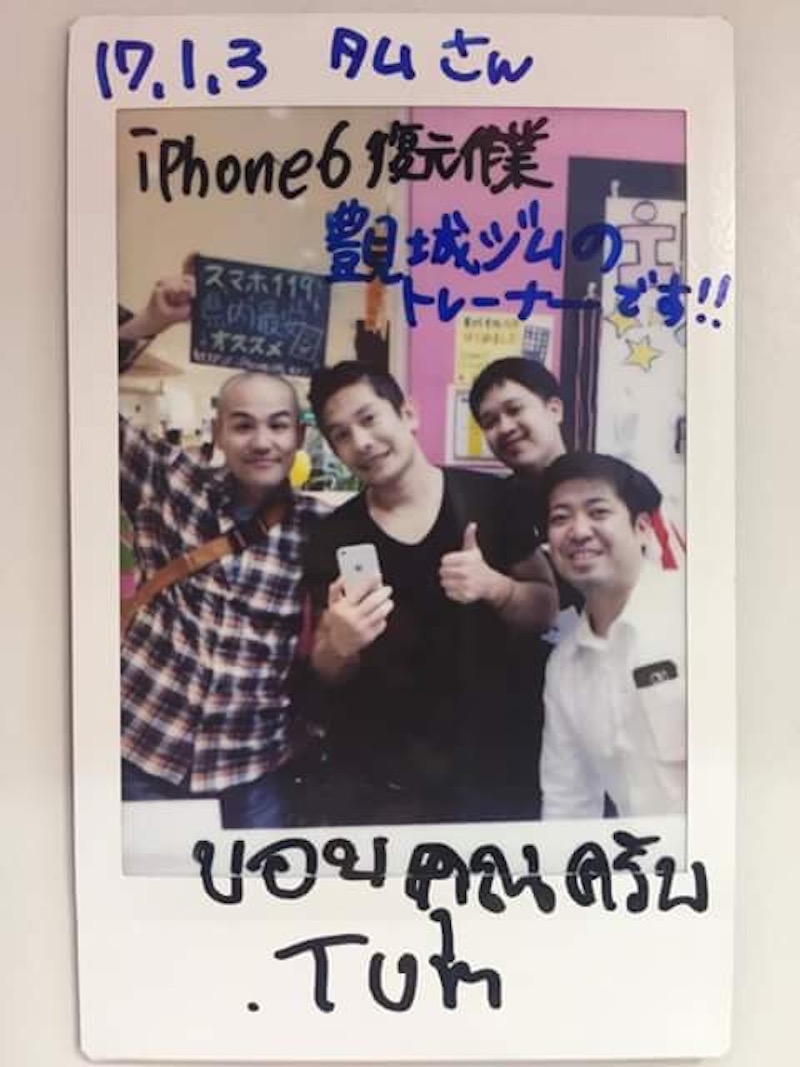 17.1.3 タムさん
iPhone6 復元作業
豊見城ジムの
トレーナーです!!
スマホ119
オススメ
ขอบคุณครับ
.Tum